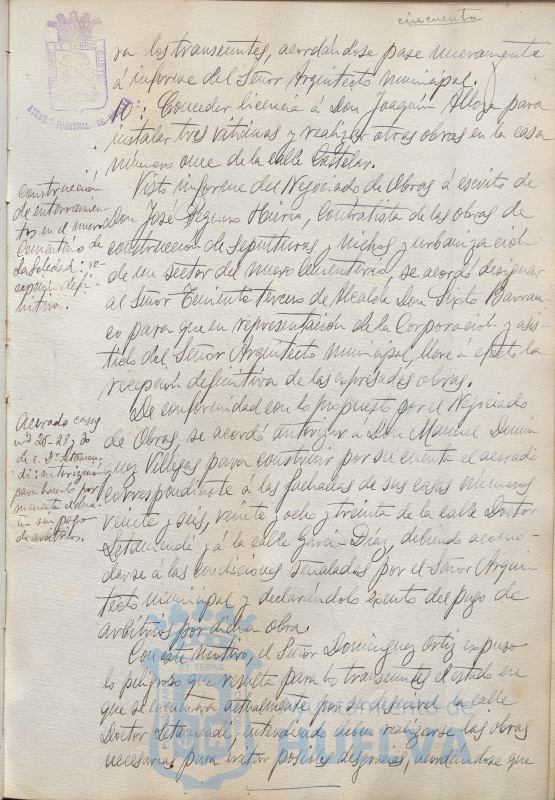 cincuenta
ra los transeuntes, acordándose pase nuevamente
á informe del Señor Arquitecto municipal.
Conceder licencia á Don Joaquín Alloza para
instalar tres vitrinas y realizar otras obras en la casa
número once de la calle Castelar.
construcción
de enterramien-
tos en el nuevo
Cementerio de
La Soledad: re-
cepción defi-
nitiva.
Visto informe del Negociado de Obras á escrito de
Don José Hierro, Contratista de las obras de
construcción de sepulturas y nichos y urbanización
de un sector del nuevo Cementerio, se acordó designar
al Señor Teniente tercero de Alcalde Don Sixto Barran
co para que en representación de la Corporación y asis-
tido del Señor Arquitecto municipal, lleve á efecto la
recepción definitiva de las expresadas obras.
Acerado casas
nos 26-28 y 30
de c. Dr Letamen-
di: autorización
para hacerlo por
su cuenta
sin pago
de arbitrios.
De conformidad con lo propuesto por el Negociado
de Obras, se acordó autorizar á Don Manuel Domin
guez Villegas para construir por su cuenta el acerado
correspondiente á las fachadas de sus casas números
veinte y seis, veinte y ocho y treinta de la calle Doctor
Letamendi y á la calle Garci-Diaz, debiendo acomo-
darse á las condiciones señaladas por el Señor Arqui-
tecto municipal y declarándolo exento del pago de
arbitrios por dicha obra.
Con este motivo, el Señor Dominguez Ortiz expuso
lo peligroso que resulta para los transeuntes el estado en
que se encuentra actualmente por su desnivel la calle
Doctor Letamendi, entendiendo deben realizarse las obras
necesarias para evitar posibles desgracias, acordándose que
HUELVA